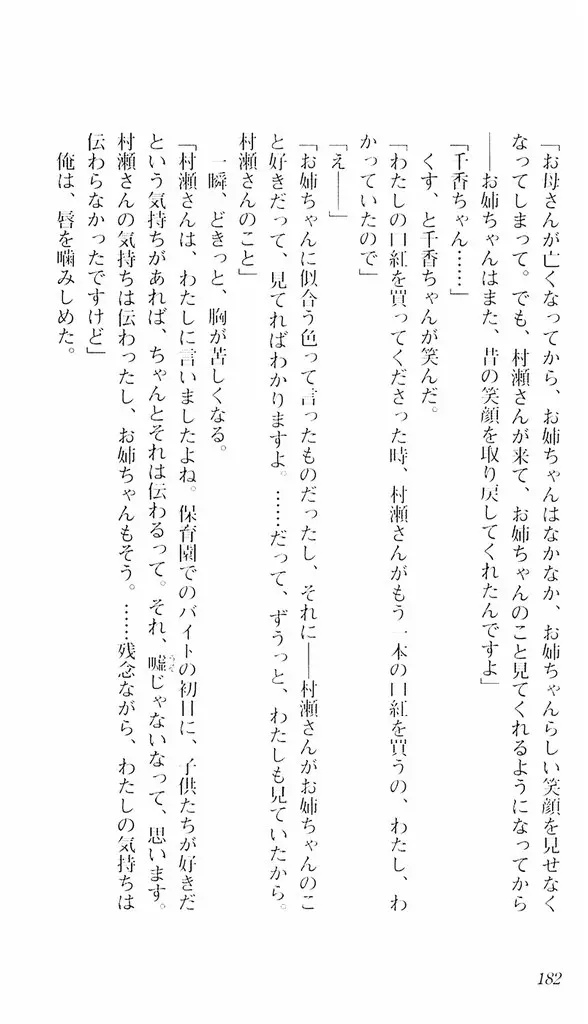 「お母さんが亡くなってから、お姉ちゃんはなかなか、お姉ちゃんらしい笑顔を見せなく
なってしまって。でも、村瀬さんが来て、お姉ちゃんのこと見てくれるようになってから
――お姉ちゃんはまた、昔の笑顔を取り戻してくれたんですよ」
「千香ちゃん……」
くす、と千香ちゃんが笑んだ。
「わたしの口紅を買ってくださった時、村瀬さんがもう一本の口紅を買うの、わたし、わ
かっていたので」
「え――」
「お姉ちゃんに似合う色って言ったものだったし、それに――村瀬さんがお姉ちゃんのこ
と好きだって、見てればわかりますよ。……だって、ずうっと、わたしも見ていたから。
村瀬さんのこと」
一瞬、どきっと、胸が苦しくなる。
「村瀬さんは、わたしに言いましたよね。保育園でのバイトの初日に、子供たちが好きだ
という気持ちがあれば、ちゃんとそれは伝わるって。それ、嘘じゃないなって、思います。
村瀬さんの気持ちは伝わったし、お姉ちゃんもそう。……残念ながら、わたしの気持ちは
伝わらなかったですけど」
俺は、唇を噛みしめた。
182